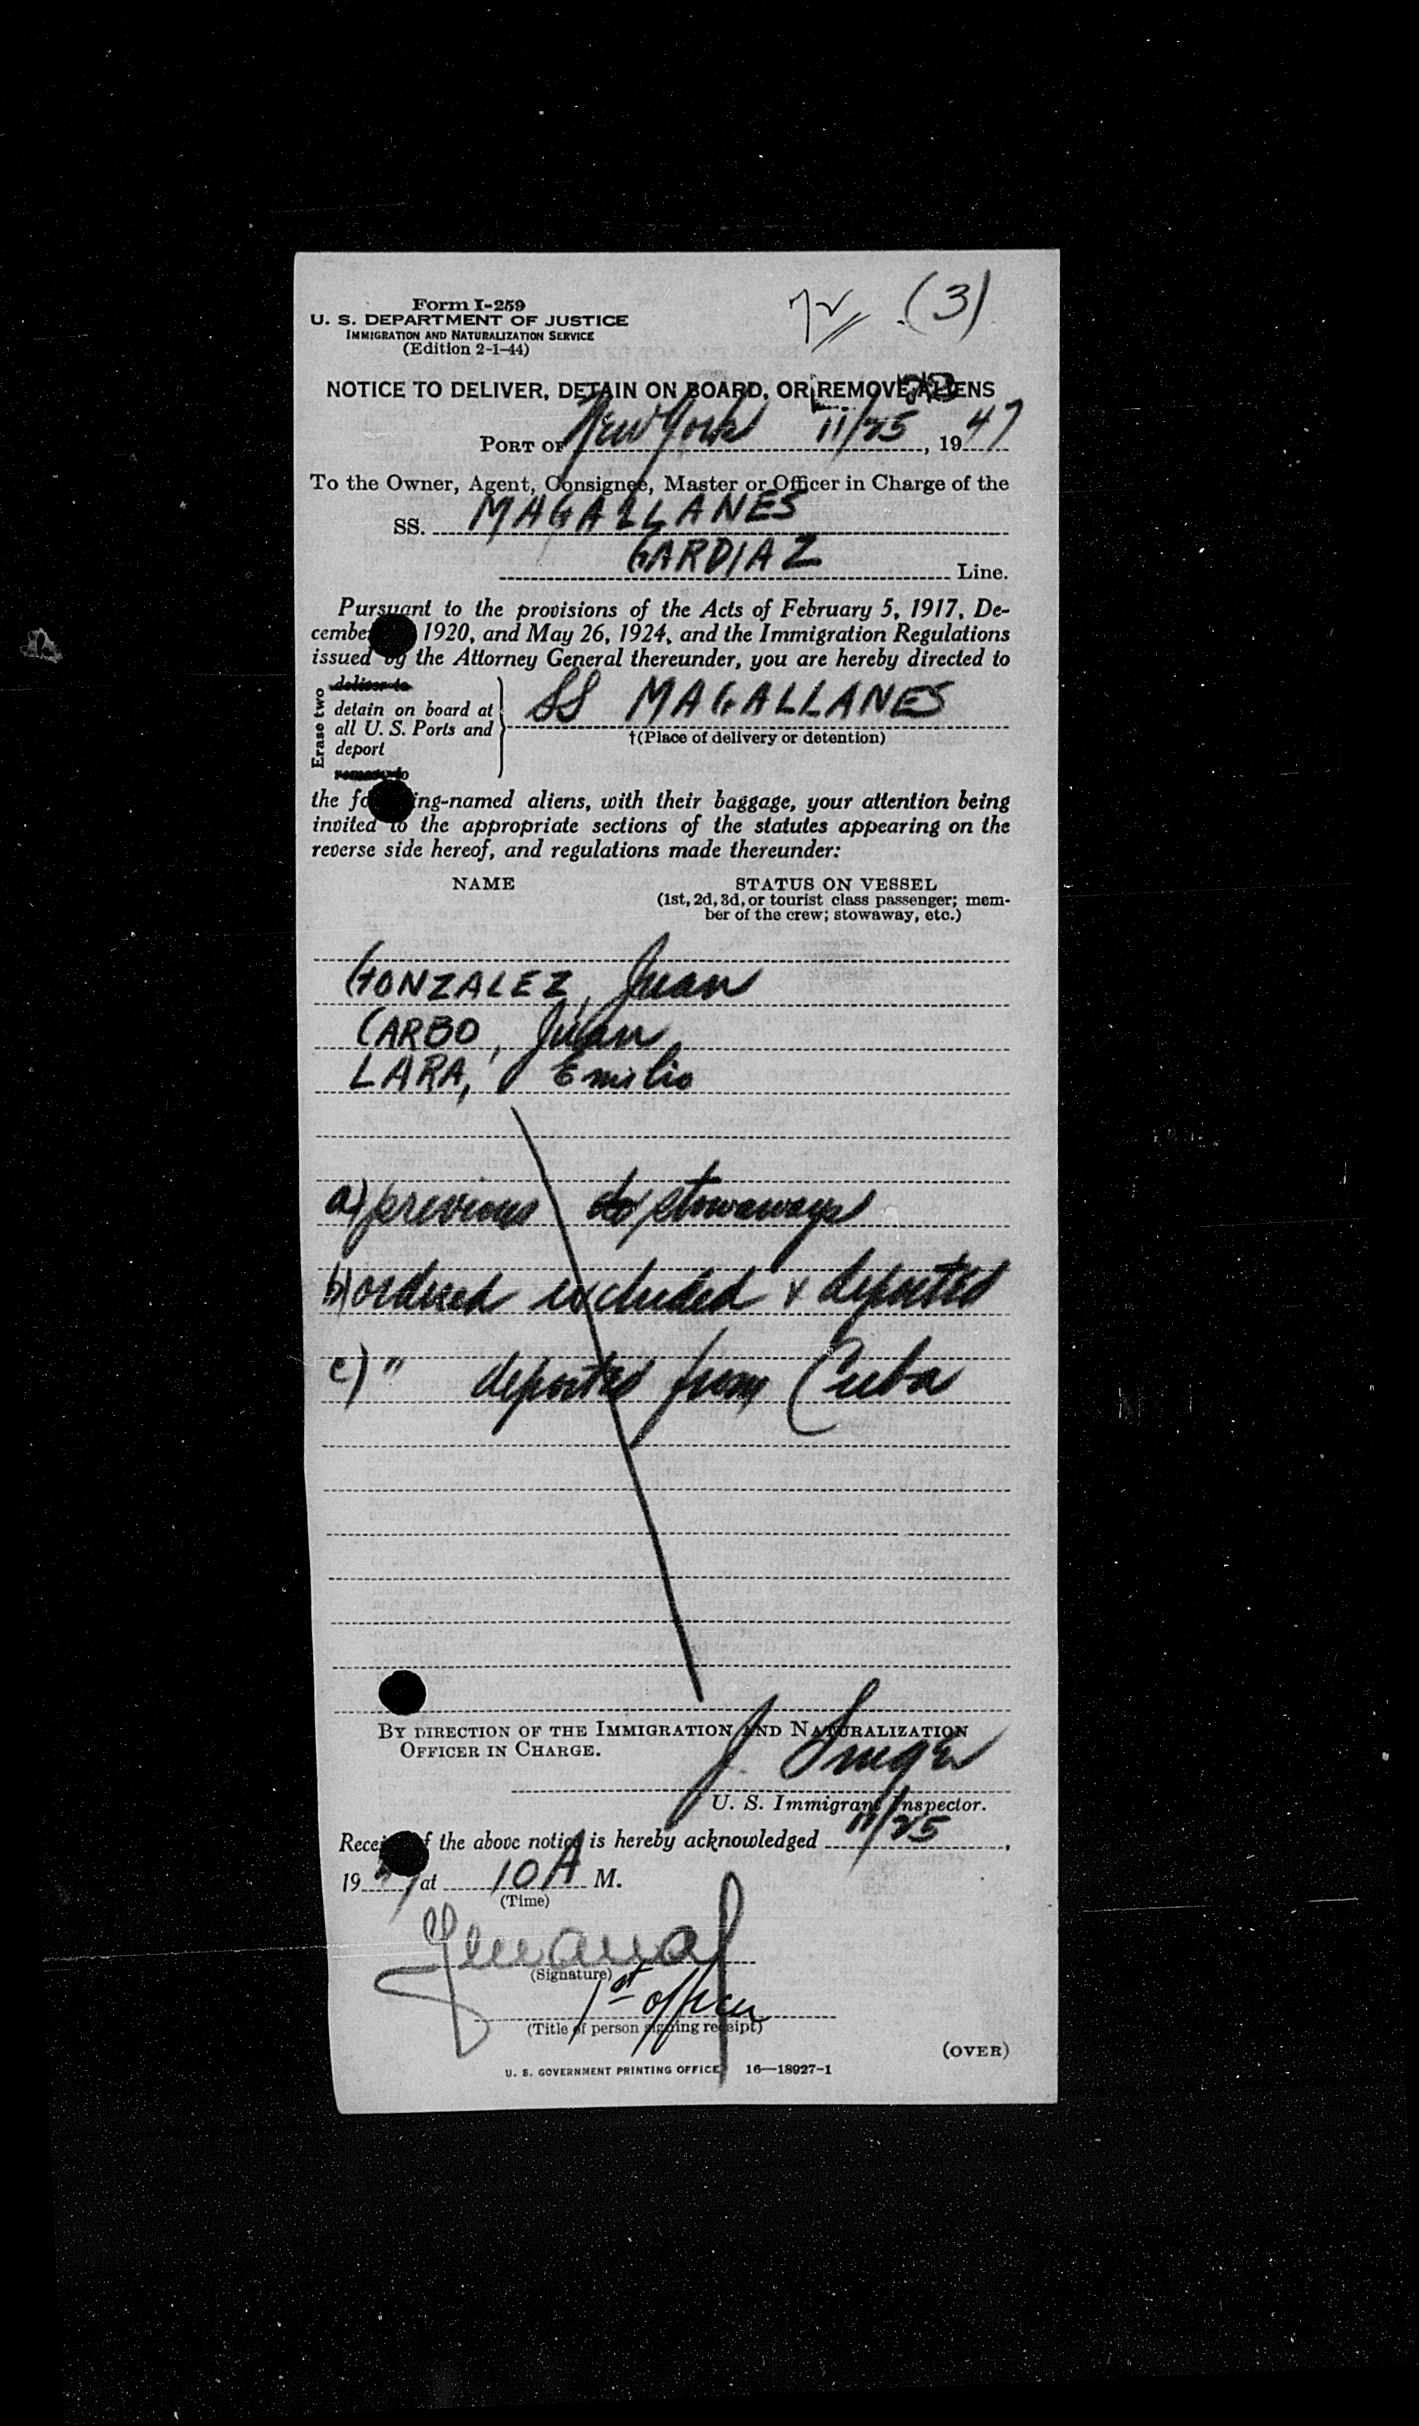 72 (3)
Form I-259
U. S. DEPARTMENT OF JUSTICE
IMMIGRATION AND NATURALIZATION SERVICE
(Edition 2-1-44)
NOTICE TO DELIVER, DETAIN ON BOARD, OR REMOVE ALIENS
PORT OF New York 11/25, 1947
To the Owner, Agent, Consignee, Master or Officer in Charge of the
SS. MAGALLANES
GARDIAZ Line.
Pursuant to the provisions of the Acts of February 5, 1917, De-
cembe 1920, and May 26, 1924, and the Immigration Regulations
issued by the Attorney General thereunder, you are hereby directed to
Erase two
deliver to
detain on board at
all U. S. Ports and
deport
remove to
SS MAGALLANES
†(Place of delivery or detention)
the fo ing-named aliens, with their baggage, your attention being
invited to the appropriate sections of the statutes appearing on the
reverse side hereof, and regulations made thereunder:
NAME STATUS ON VESSEL
(1st, 2d, 3d, or tourist class passenger; mem-
ber of the crew; stowaway, etc.)
GONZALEZ, Juan
CARBO, Julan
LARA, Emilio
a) previous stowaways
b) ordered excluded & deported
c) " deported from Cuba
BY DIRECTION OF THE IMMIGRATION AND NATURALIZATION
OFFICER IN CHARGE.
J. Singer
U. S. Immigrant Inspector.
Recei f the above notice is hereby acknowledged 11/25,
1947 at 10 A M.
(Time)
(Signature)
1st officer
(Title of person signing receipt)
(OVER)
U. S. GOVERNMENT PRINTING OFFICE 16—18927-1